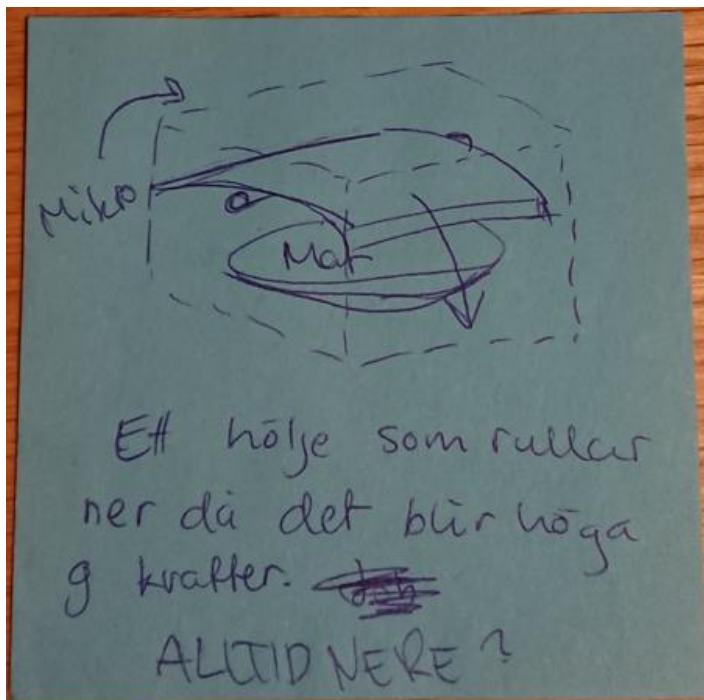 Mikro
Mat
Ett hölje som rullar
ner då det blir höga
g krafter.
ALLTID NERE?